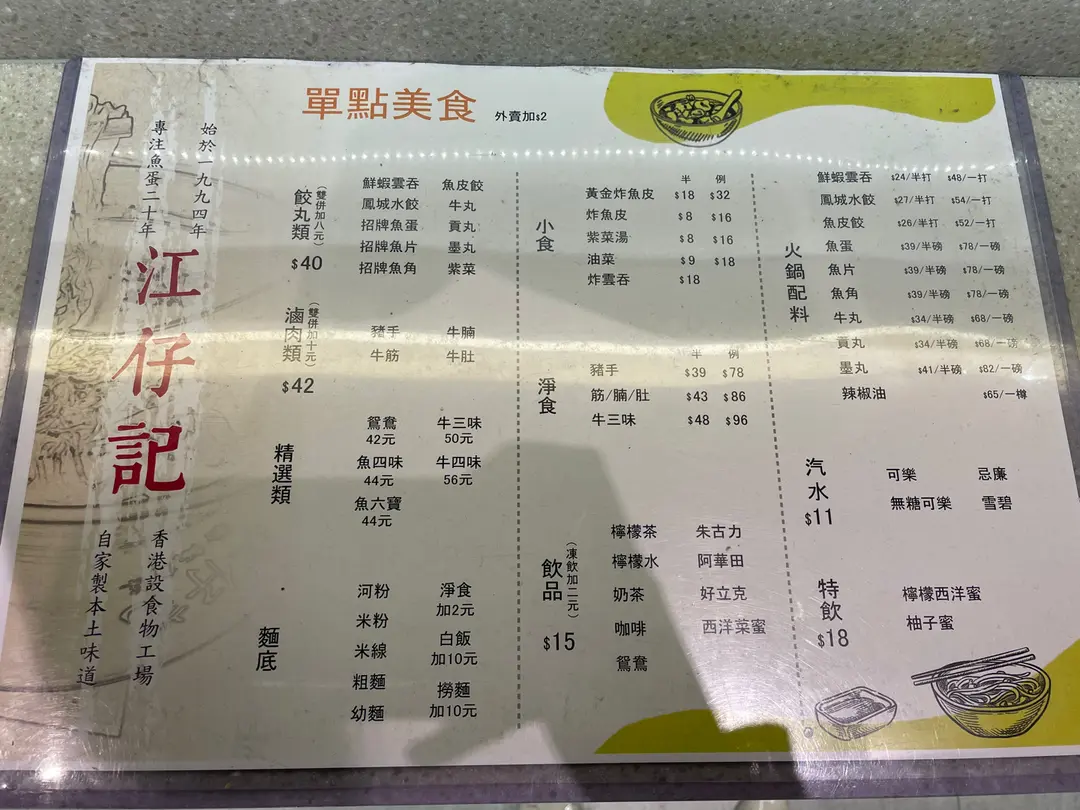 單點美食 外賣加$2
始於一九九四年
專注魚蛋二十年
江仔記
香港設食物工場
自家製本土味道
餃丸類
(雙併加八元)
$40
鮮蝦雲吞 魚皮餃
鳳城水餃 牛丸
招牌魚蛋 貢丸
招牌魚片 墨丸
招牌魚角 紫菜
滷肉類
(雙併加十元)
$42
豬手 牛腩
牛筋 牛肚
精選類
鴛鴦 牛三味
42元 50元
魚四味 牛四味
44元 56元
魚六寶
44元
麵底
河粉 淨食
加2元
米粉
米線 白飯
加10元
粗麵
幼麵 撈麵
加10元
小食
半 例
黃金炸魚皮 $18 $32
炸魚皮 $8 $16
紫菜湯 $8 $16
油菜 $9 $18
炸雲吞 $18
淨食
半 例
豬手 $39 $78
筋/腩/肚 $43 $86
牛三味 $48 $96
飲品
(凍飲加二元)
$15
檸檬茶 朱古力
檸檬水 阿華田
奶茶 好立克
咖啡 西洋菜蜜
鴛鴦
火鍋配料
鮮蝦雲吞 $24/半打 $48/一打
鳳城水餃 $27/半打 $54/一打
魚皮餃 $26/半打 $52/一打
魚蛋 $39/半磅 $78/一磅
魚片 $39/半磅 $78/一磅
魚角 $39/半磅 $78/一磅
牛丸 $34/半磅 $68/一磅
貢丸 $34/半磅 $68/一磅
墨丸 $41/半磅 $82/一磅
辣椒油 $65/一樽
汽水
$11
可樂 忌廉
無糖可樂 雪碧
特飲
$18
檸檬西洋蜜
柚子蜜